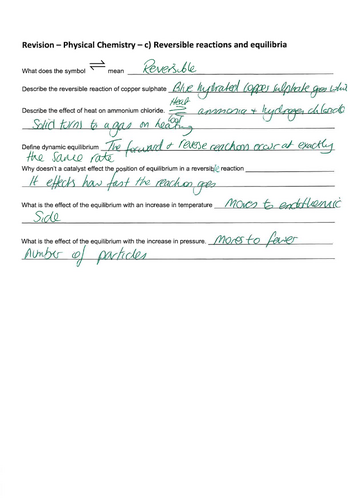 Revision – Physical Chemistry – c) Reversible reactions and equilibria
What does the symbol ⇌ mean Reversible
Describe the reversible reaction of copper sulphate Blue hydrated copper sulphate goes white
Heat
Describe the effect of heat on ammonium chloride. ⇌ ammonia + hydrogen chloride
Cool
Solid turns to a gas on heating
Define dynamic equilibrium The forward + reverse reactions occur at exactly
the same rate
Why doesn't a catalyst effect the position of equilibrium in a reversible reaction
It effects how fast the reaction goes
What is the effect of the equilibrium with an increase in temperature Moves to endothermic
Side
What is the effect of the equilibrium with the increase in pressure. Moves to fewer
Number of particles